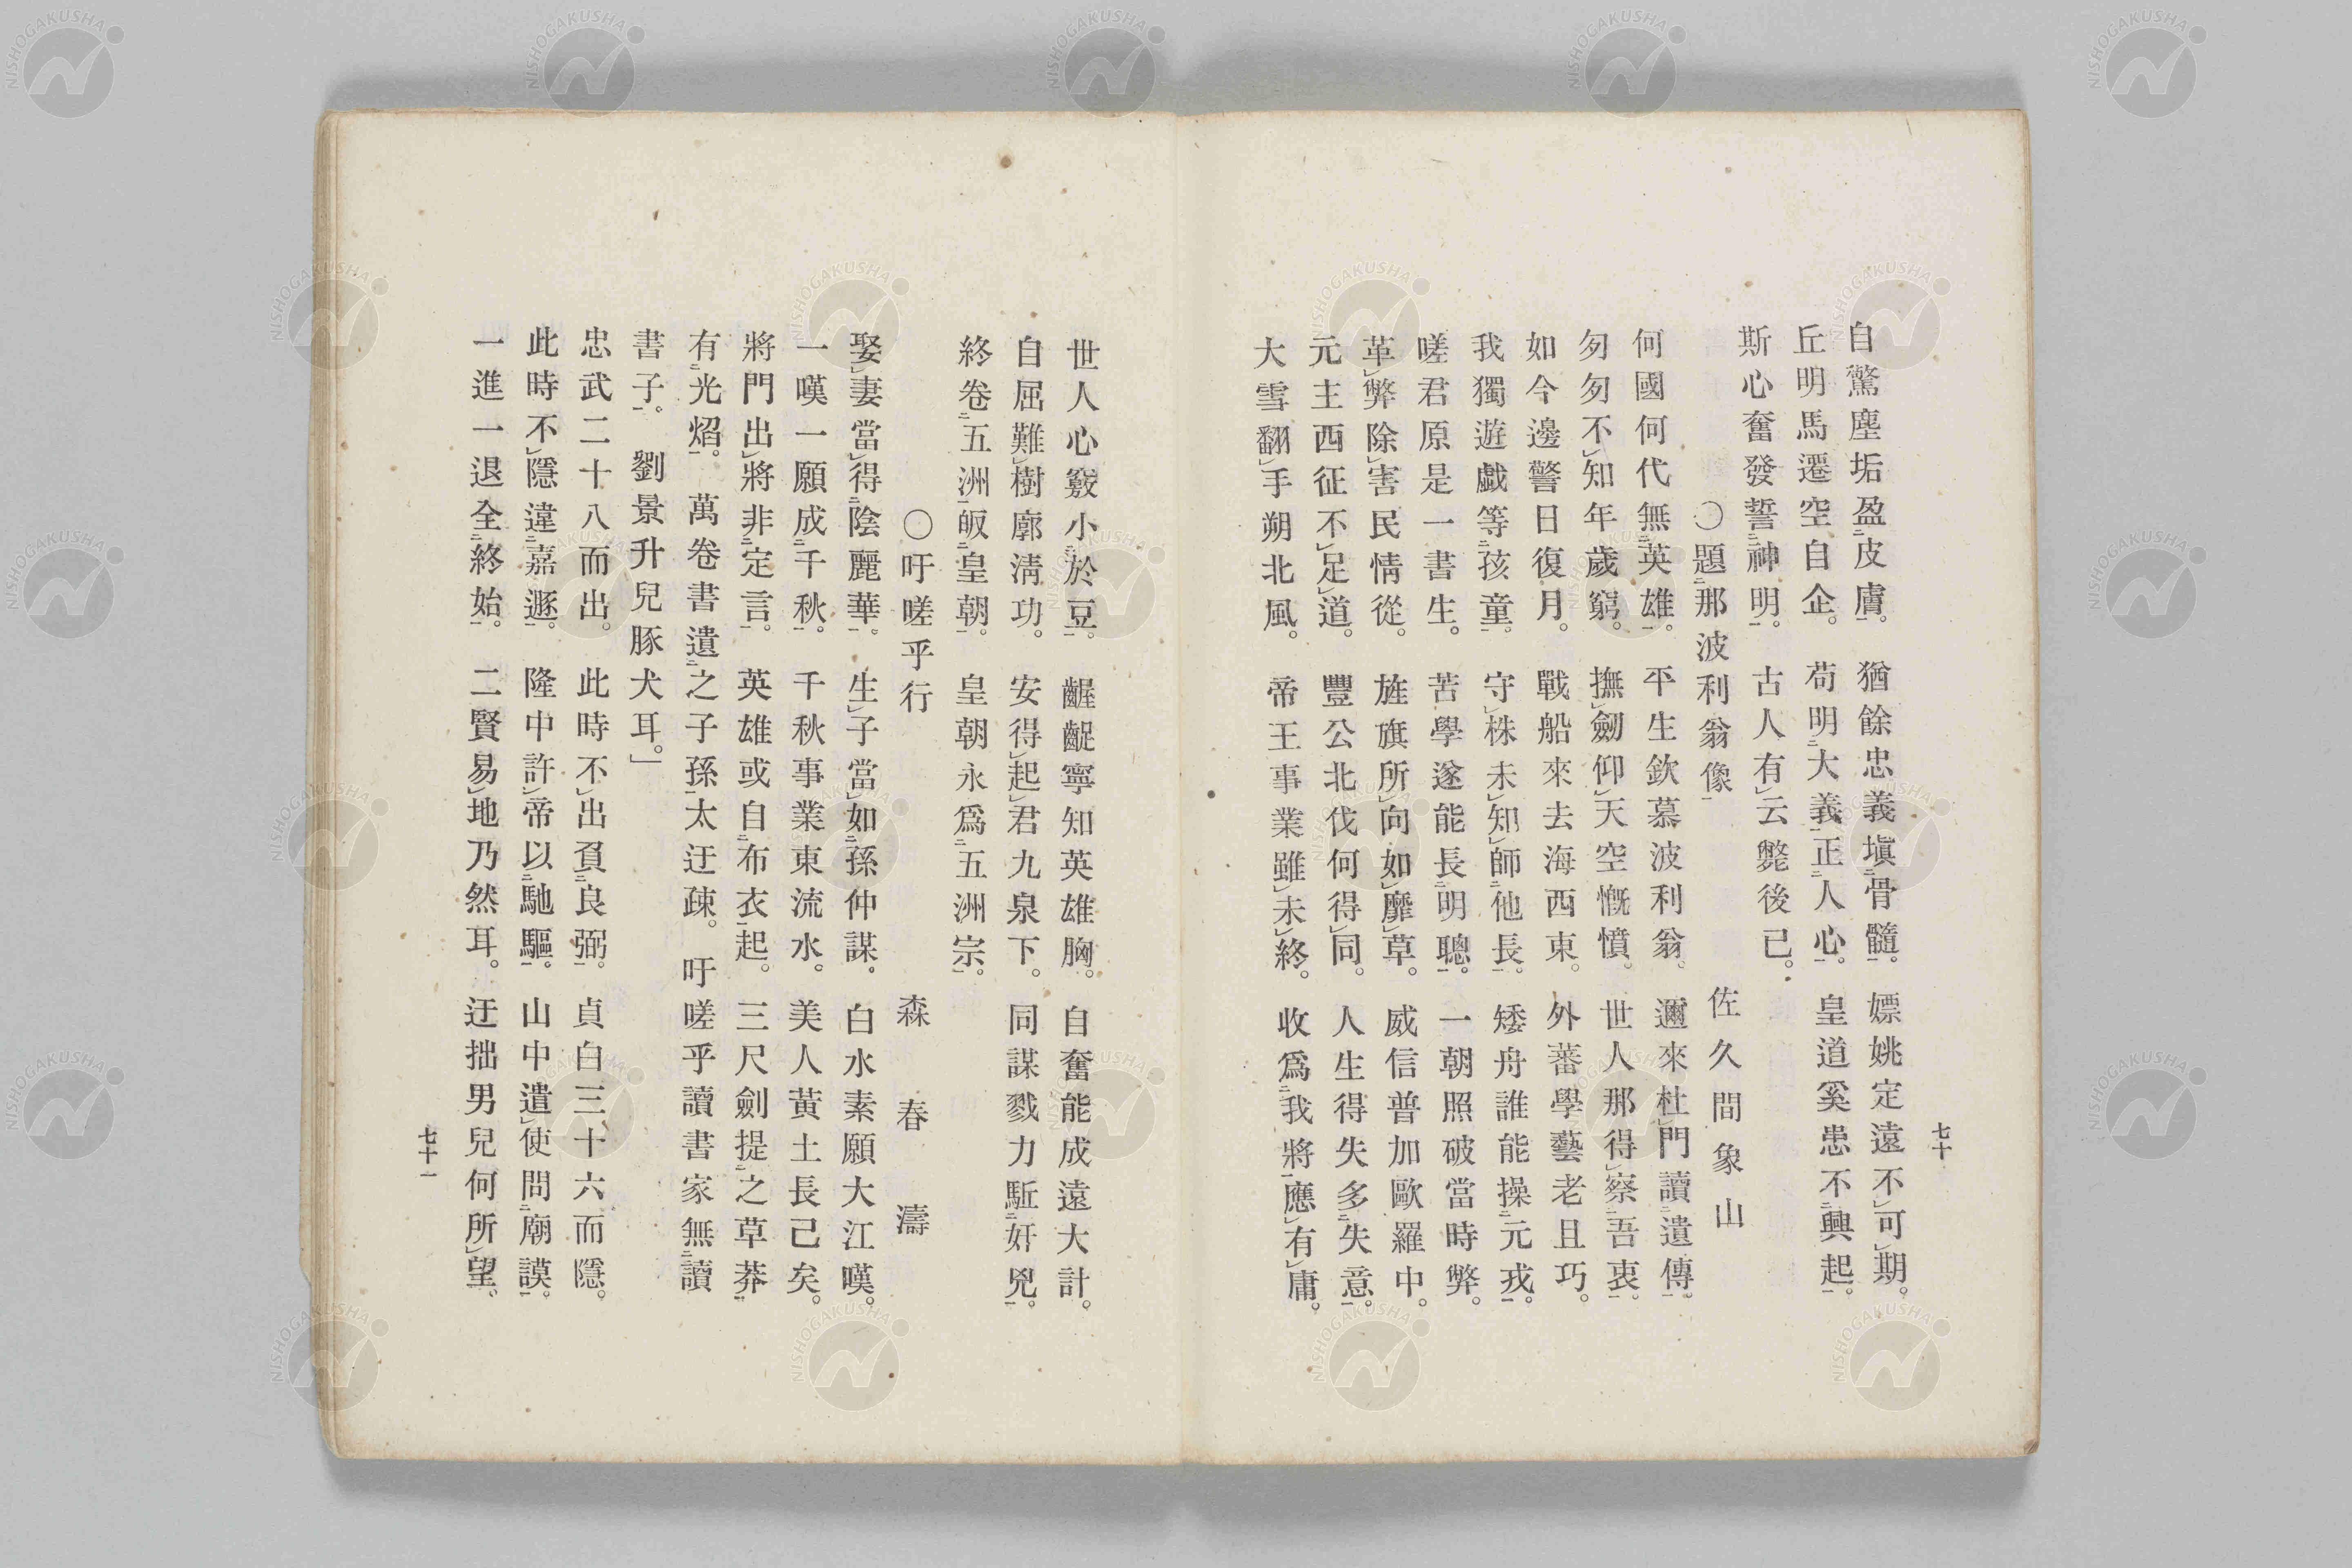 七十
自驚塵垢盈皮膚。猶餘忠義塡骨髓。嫖姚定遠不可期。
丘明馬遷空自企。苟明大義正人心。皇道奚患不興起。
斯心奮發誓神明。古人有云斃後已。
○題那波利翁像 佐久間象山
何國何代無英雄。平生欽慕波利翁。邇來杜門讀遺傳。
匆匆不知年歲窮。撫劒仰天空慨憤。世人那得察吾衷。
如今邊警日復月。戰船來去海西東。外蕃學藝老且巧。
我獨遊戯等孩童。守株未知師他長。矮舟誰能操元戎。
嗟君原是一書生。苦學遂能長明聰。一朝照破當時弊。
革弊除害民情從。旌旗所向如靡草。威信普加歐羅中。
元主西征不足道。豐公北伐何得同。人生得失多失意。
大雪翻手朔北風。帝王事業雖未終。收爲我將應有庸。
世人心竅小於豆。齷齪寧知英雄胸。自奮能成遠大計。
自屈難樹廓淸功。安得起君九泉下。同謀戮力駈奸兇。
終卷五洲皈皇朝。皇朝永爲五洲宗。
○吁嗟乎行 森春濤
娶妻當得陰麗華。生子當如孫仲謀。白水素願大江嘆。
一嘆一願成千秋。千秋事業東流水。美人黃土長已矣。
將門出將非定言。英雄或自布衣起。三尺劍提之草莽
有光焰。萬卷書遺之子孫太迂疎。吁嗟乎讀書家無讀
書子。劉景升兒豚犬耳。」
忠武二十八而出。此時不出負良弼。貞白三十六而隱。
此時不隱違嘉遯。隆中許帝以馳驅。山中遣使問廟謨。
一進一退全終始。二賢易地乃然耳。迂拙男兒何所望。
七十一